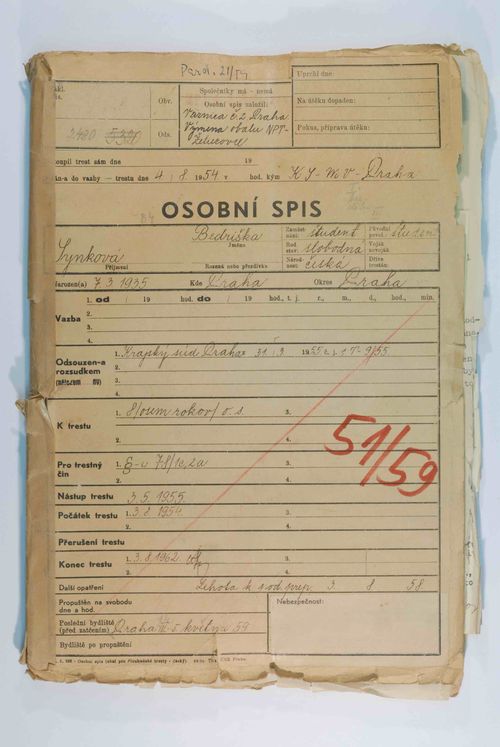 Pard. 21/
Společníky má - nemá
Uprchl dne:
Obv.
Osobní spis založil:
Na útěku dopaden:
Věznice č. 2 Praha
Výměna obalu NPT-
Želiezovce
Pokus, příprava útěku:
2480
Ods.
oupil trest sám dne 19
án-a do vazby - trestu dne 4/8 1954 v hod. kým KS-MV-Praha
OSOBNÍ SPIS
Synkova Bedriška
Příjmení Jméno
Rozená nebo přezdívka
Zaměst-nání: študent
Původní povol.: študent
Rod. stav: slobodná
Voják nováček
Národ-nost: česká
Dříve trestán:
Narozen(a) 7. 3. 1935 Kde Praha Okres Praha
Vazba
1. od / 19 hod., do / 19 hod., t. j. r., m., d., hod., min.
2.
3.
4.
Odsouzen-a rozsudkem
1. Krajský súd Praha 31/3 1955 č. 1 T 9/55
2.
3.
4.
K trestu
1. 8/osem rokov/ o. s. 3.
2. 4.
51/59
Pro trestný čin
1. §-u 78/1c, 2a 3.
2. 4.
Nástup trestu 3. 5. 1955
Počátek trestu 1. 3. 8. 1954 3.
2. 4.
Přerušení trestu
Konec trestu 1. 3. 8. 1962 3.
2. 4.
Další opatření Lehota k pod. 3 8 58
Propuštěn na svobodu
dne a hod.
Nebezpečnost:
Poslední bydliště
(před zatčením) Praha 5. května 59
Bydliště po propuštění